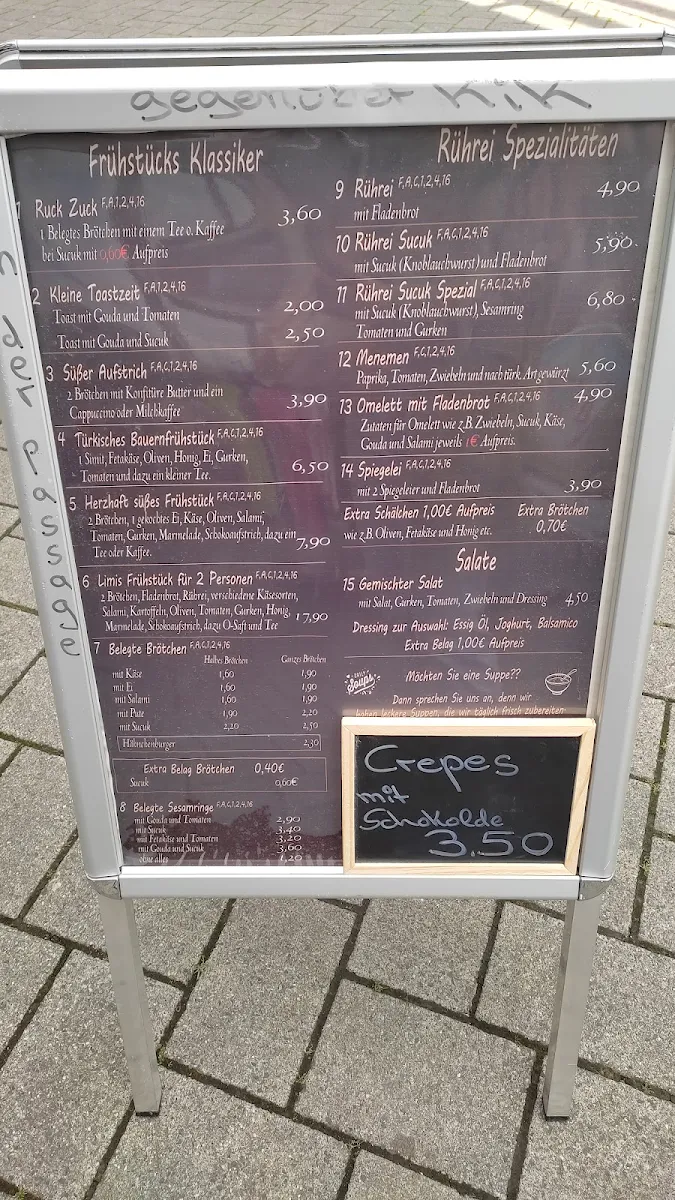 gegenüber KiK
n der Passage
Frühstücks Klassiker
1 Ruck Zuck F,A,1,2,4,16
1 Belegtes Brötchen mit einem Tee o. Kaffee 3,60
bei Sucuk mit 0,60€ Aufpreis
2 Kleine Toastzeit F,A,C,1,2,4,16
Toast mit Gouda und Tomaten 2,00
Toast mit Gouda und Sucuk 2,50
3 Süßer Aufstrich F,A,C,1,2,4,16
2 Brötchen mit Konfitüre Butter und ein
Cappuccino oder Milchkaffee 3,90
4 Türkisches Bauernfrühstück F,A,C,1,2,4,16
1 Simit, Fetakäse, Oliven, Honig, Ei, Gurken,
Tomaten und dazu ein kleiner Tee. 6,50
5 Herzhaft süßes Frühstück F,A,C,1,2,4,16
2 Brötchen, 1 gekochtes Ei, Käse, Oliven, Salami,
Tomaten, Gurken, Marmelade, Schokoaufstrich, dazu ein
Tee oder Kaffee. 7,90
6 Limis Frühstück für 2 Personen F,A,C,1,2,4,16
2 Brötchen, Fladenbrot, Rührei, verschiedene Käsesorten,
Salami, Kartoffeln, Oliven, Tomaten, Gurken, Honig,
Marmelade, Schokoaufstrich, dazu O-Saft und Tee 17,90
7 Belegte Brötchen F,A,C,1,2,4,16
Halbes Brötchen Ganzes Brötchen
mit Käse 1,60 1,90
mit Ei 1,60 1,90
mit Salami 1,60 1,90
mit Pute 1,90 2,20
mit Sucuk 2,20 2,50
Hähnchenburger 2,30
Extra Belag Brötchen 0,40€
Sucuk 0,60€
8 Belegte Sesamringe F,A,C,1,2,4,16
mit Gouda und Tomaten 2,90
mit Sucuk 3,40
mit Fetakäse und Tomaten 3,20
mit Gouda und Sucuk 3,60
ohne alles 1,20
Rührei Spezialitäten
9 Rührei F,A,C,1,2,4,16 4,90
mit Fladenbrot
10 Rührei Sucuk F,A,C,1,2,4,16 5,90
mit Sucuk (Knoblauchwurst) und Fladenbrot
11 Rührei Sucuk Spezial F,A,C,1,2,4,16 6,80
mit Sucuk (Knoblauchwurst), Sesamring
Tomaten und Gurken
12 Menemen F,C,1,2,4,16
Paprika, Tomaten, Zwiebeln und nach türk. Art gewürzt 5,60
13 Omelett mit Fladenbrot F,A,C,1,2,4,16 4,90
Zutaten für Omelett wie z.B. Zwiebeln, Sucuk, Käse,
Gouda und Salami jeweils 1€ Aufpreis.
14 Spiegelei F,A,C,1,2,4,16
mit 2 Spiegeleier und Fladenbrot 3,90
Extra Schälchen 1,00€ Aufpreis
wie z.B. Oliven, Fetakäse und Honig etc.
Extra Brötchen
0,70€
Salate
15 Gemischter Salat
mit Salat, Gurken, Tomaten, Zwiebeln und Dressing 4,50
Dressing zur Auswahl: Essig Öl, Joghurt, Balsamico
Extra Belag 1,00€ Aufpreis
Daily Soups
Möchten Sie eine Suppe??
Dann sprechen Sie uns an, denn wir
haben leckere Suppen, die wir täglich frisch zubereiten.
Crepes
mit
Schokolde
3.50